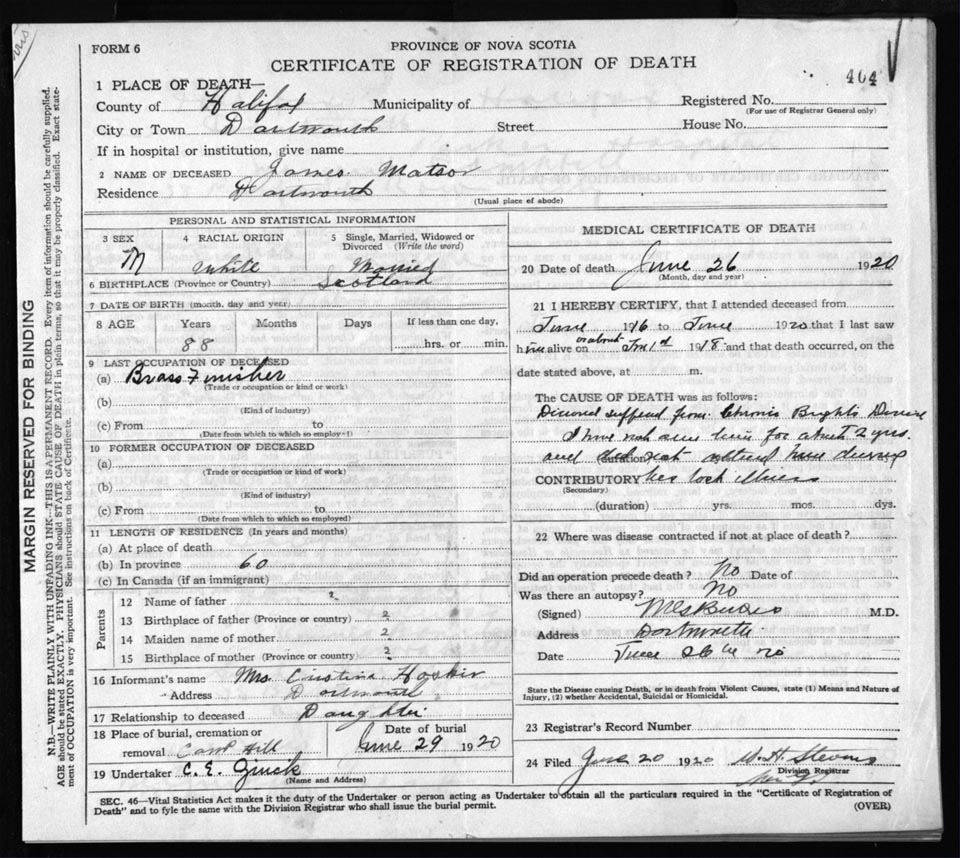 FORM 6
PROVINCE OF NOVA SCOTIA
CERTIFICATE OF REGISTRATION OF DEATH
404
1 PLACE OF DEATH—
County of Halifax Municipality of Registered No.
(For use of Registrar General only)
City or Town Dartmouth Street House No.
If in hospital or institution, give name
2 NAME OF DECEASED James Matson
Residence Dartmouth
(Usual place of abode)
PERSONAL AND STATISTICAL INFORMATION
3 SEX 4 RACIAL ORIGIN 5 Single, Married, Widowed or Divorced (Write the word)
M White Married
6 BIRTHPLACE (Province or Country) Scotland
7 DATE OF BIRTH (month, day and year)
8 AGE Years Months Days If less than one day,
88 hrs. or min.
9 LAST OCCUPATION OF DECEASED
(a) Brass Finisher
(Trade or occupation or kind or work)
(b)
(Kind of industry)
(c) From to
(Date from which to which so employed)
10 FORMER OCCUPATION OF DECEASED
(a)
(Trade or occupation or kind of work)
(b)
(Kind of industry)
(c) From to
(Date from which to which so employed)
11 LENGTH OF RESIDENCE (In years and months)
(a) At place of death
(b) In province 60
(c) In Canada (if an immigrant)
Parents
12 Name of father ?
13 Birthplace of father (Province or country) ?
14 Maiden name of mother ?
15 Birthplace of mother (Province or country) ?
16 Informant's name Mrs. Cristina
Address Dartmouth
17 Relationship to deceased Daughter
18 Place of burial, cremation or Date of burial
removal Camp Hill June 29 1920
19 Undertaker C. E.
(Name and Address)
MEDICAL CERTIFICATE OF DEATH
20 Date of death June 26 1920
(Month, day and year)
21 I HEREBY CERTIFY, that I attended deceased from
June 1916 to June 1920 that I last saw
him alive on or about 1918 and that death occurred, on
date stated above, at m.
The CAUSE OF DEATH was as follows:
suffered from Chronic Brights Disease
I have not seen him for about 2 yrs.
and (duration) not attend him during
CONTRIBUTORY his last illness
(Secondary)
(duration) yrs. mos. dys.
22 Where was disease contracted if not at place of death?
Did an operation precede death? No Date of
Was there an autopsy? No
(Signed) M.D.
Address Dartmouth
Date June 26th 20
State the Disease causing Death, or in death from Violent Causes, state (1) Means and Nature of
Injury, (2) whether Accidental, Suicidal or Homicidal.
23 Registrar's Record Number
24 Filed 1920 W. H. Stevens
Division Registrar
SEC. 46—Vital Statistics Act makes it the duty of the Undertaker or person acting as Undertaker to obtain all the particulars required in the "Certificate of Registration of
Death" and to fyle the same with the Division Registrar who shall issue the burial permit.
(OVER)
MARGIN RESERVED FOR BINDING
N.B.—WRITE PLAINLY WITH UNFADING INK—THIS IS A PERMANENT RECORD. Every item of information should be carefully supplied.
AGE should be stated EXACTLY. PHYSICIANS should STATE CAUSE OF DEATH in plain terms, so that it may be properly classified. Exact state-
ment of OCCUPATION is very important. See instructions on back of Certificate.